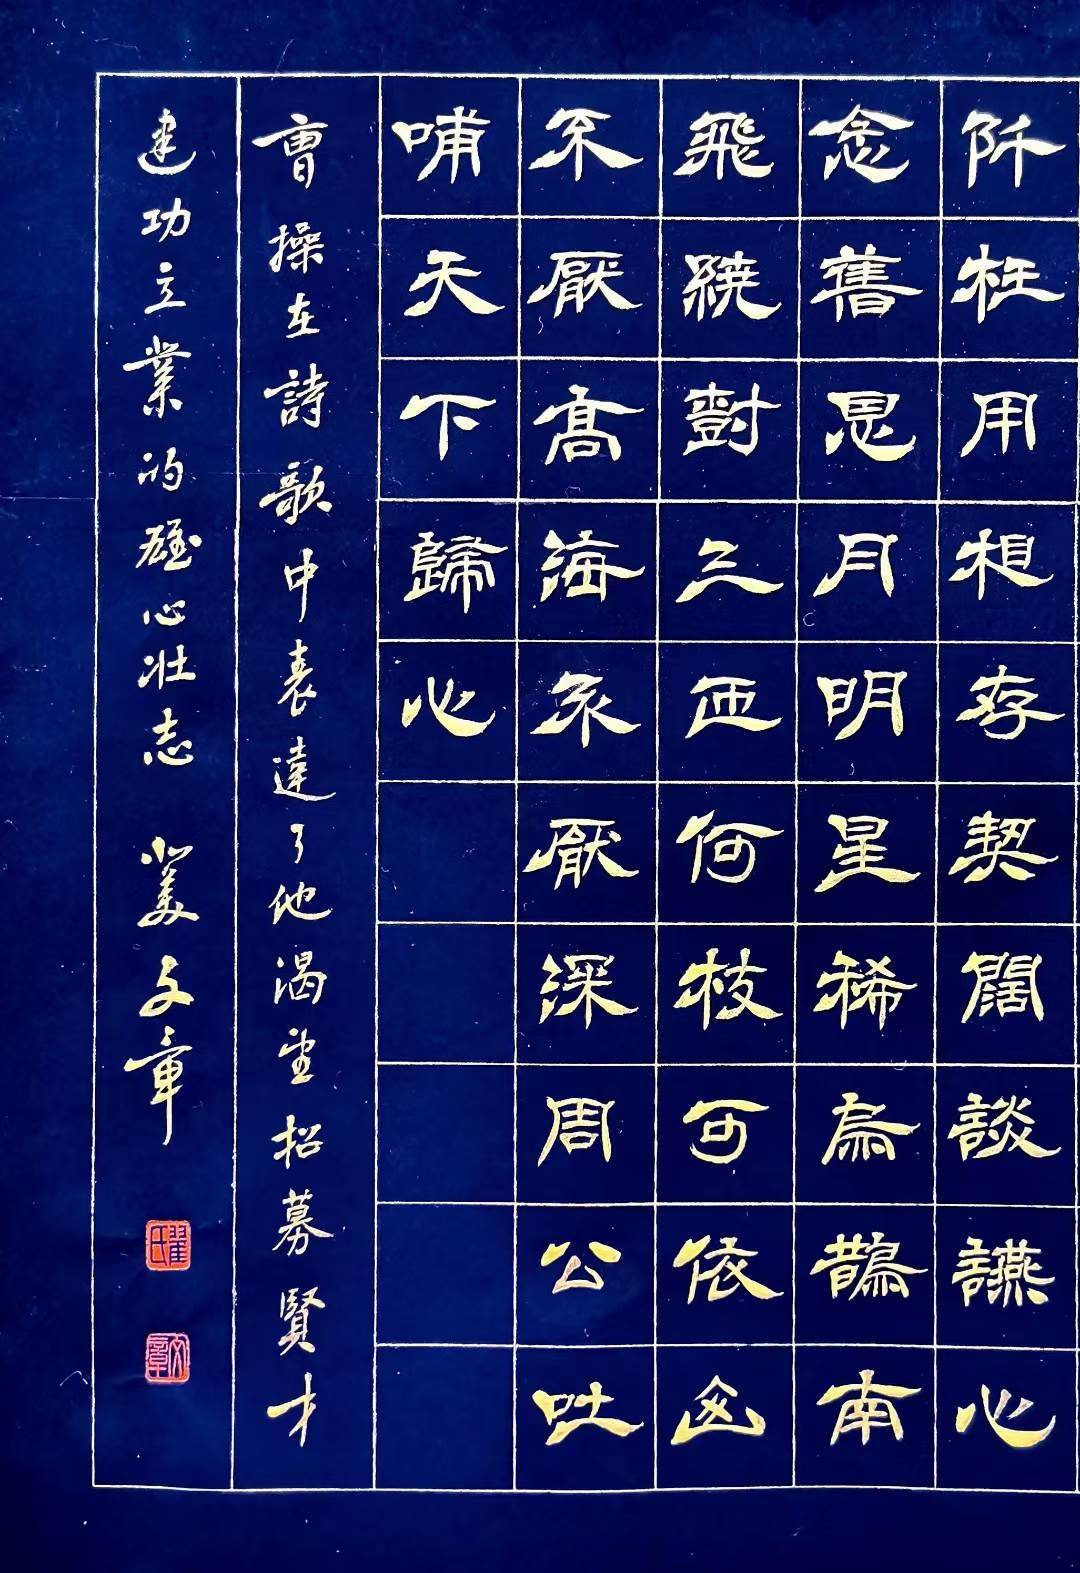 阡枉用相存契闊談讌心
念舊恩月明星稀烏鵲南
飛繞樹三匝何枝可依山
不厭高海不厭深周公吐
哺天下歸心
曹操在詩歌中表達了他渴望招募賢才
建功立業的雄心壯志 文章
翟氏
文章